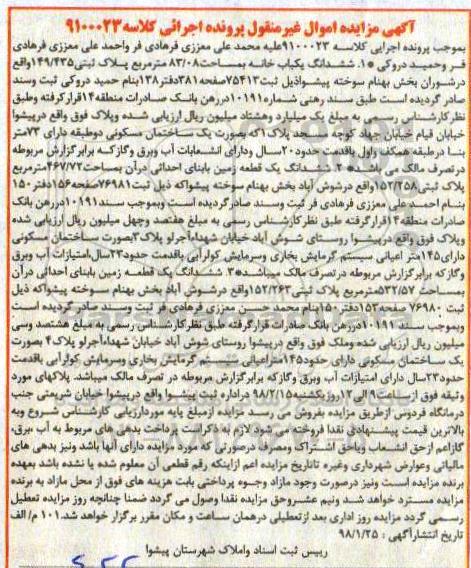 آگهی مزایده اموال غیرمنقول پرونده اجرائی کلاسه ۹۱۰۰۰۲۳
بموجب پرونده اجرایی کلاسه ۹۱۰۰۰۲۳علیه محمد علی معززی فرهادی فر واحمد علی معززی فرهادی
فر وحمید دروکی ۱*. ششدانگ یکباب خانه بمساحت۸۳/۰۸ مترمربع پلاک ثبتی۱۴۹/۴۳۵واقع
درشوران بخش بهنام سوخته پیشواذیل ثبت۷۵۴۱۳صفحه۳۸۱دفتر۱۳۸بنام حمید دروکی ثبت وسند
صادر گردیده است طبق سند رهنی شماره۱۰۱۹۱دررهن بانک صادرات منطقه۱۴قرارگرفته وطبق
نظرکارشناس رسمی به مبلغ یک میلیارد وهشتاد میلیون ریال ارزیابی شده وپلاک فوق واقع درپیشوا
خیابان قیام خیابان جهاد کوچه مسجد پلاک۱که بصورت یک ساختمان مسکونی دوطبقه دارای ۷۳متر
بنا درطبقه همکف واول باقدمت حدود۲۰سال ودارای انشعابات آب وبرق وگازکه برابرگزارش مربوطه
در تصرف مالک می باشد*۲. ششدانگ یک قطعه زمین بابنای احداثی درآن بمساحت۴۶۷/۷۲مترمربع
پلاک ثبتی۱۵۲/۲۵۸واقع درشوش آباد بخش بهنام سوخته پیشواکه ذیل ثبت۷۶۹۸۱صفحه۱۵۶دفتر۱۵۰
بنام احمد علی معززی فرهادی فر ثبت وسند صادرگردیده است وبموجب سند۱۰۱۹۱دررهن بانک
صادرات منطقه۱۴قرارگرفته طبق نظرکارشناس رسمی به مبلغ هفتصد وچهل میلیون ریال ارزیابی شده
وپلاک فوق واقع درپیشوا روستای شوش آباد خیابان شهداءآجرلو پلاک۳بصورت ساختمان مسکونی
دارای۱۴۵متر اعیانی سیستم گرمایش بخاری وسرمایش کولرآبی باقدمت حدود۲۳سال،امتیازات آب وبرق
وگازکه برابرگزارش مربوطه در تصرف مالک میباشد*۳ ششدانگ یک قطعه زمین بابنای احداثی درآن
بمساحت ۵۳۲/۵۷مترمربع پلاک ثبتی۱۵۲/۲۶۳واقع درشوش آباد بخش بهنام سوخته پیشواکه ذیل
ثبت ۷۶۹۸۰ صفحه۱۵۳دفتر۱۵۰بنام محمد حسن معززی فرهادی فر ثبت وسند صادرگردیده است
وبموجب سند ۱۰۱۹۱دررهن بانک صادرات قرارگرفته طبق نظرکارشناس رسمی به مبلغ هشتصد وسی
میلیون ریال ارزیابی شده وملک فوق واقع درپیشوا روستای شوش آباد خیابان شهداءآجرلو پلاک۴ بصورت
یک ساختمان مسکونی دارای حدود۱۴۵متراعیانی سیستم گرمایش بخاری وسرمایش کولرآبی باقدمت
حدود۲۳سال دارای امتیازات آب وبرق وگازکه برابرگزارش مربوطه در تصرف مالک میباشد. پلاکهای مورد
وثیقه فوق ازساعت۹الی ۱۲روزیکشنبه۹۸/۲/۱۵ دراداره ثبت پیشوا واقع درپیشوا خیابان شریعتی جنب
درمانگاه فردوس ازطریق مزایده بفروش می رسد مزایده ازمبلغ پایه موردارزیابی کارشناس شروع وبه
بالاترین قیمت پیشنهادی نقدا فروخته می شود لازم به ذکراست پرداخت بدهی های مربوط به آب ،برق،
گازاعم ازحق انشعاب ویاحق اشتراک ومصرف درصورتی که مورد مزایده دارای آنها باشد ونیز بدهی های
مالیاتی وعوارض شهرداری وغیره تاتاریخ مزایده اعم ازاینکه رقم قطعی آن معلوم شده یا نشده باشد بعهده
برنده مزایده است ونیز درصورت وجود مازاد وجوه پرداختی بابت هزینه های فوق از محل مازاد به برنده
مزایده مسترد خواهد شد ونیم عشروحق مزایده نقدا وصول می گردد ضمنا چنانچه روز مزایده تعطیل
رسمی گردد مزایده روز اداری بعد ازتعطیلی درهمان ساعت و مکان مقرر برگزار خواهد شد.۱۰۱م/الف
تاریخ انتشارآگهی : ۹۸/۱/۲۵
رییس ثبت اسناد واملاک شهرستان پیشوا